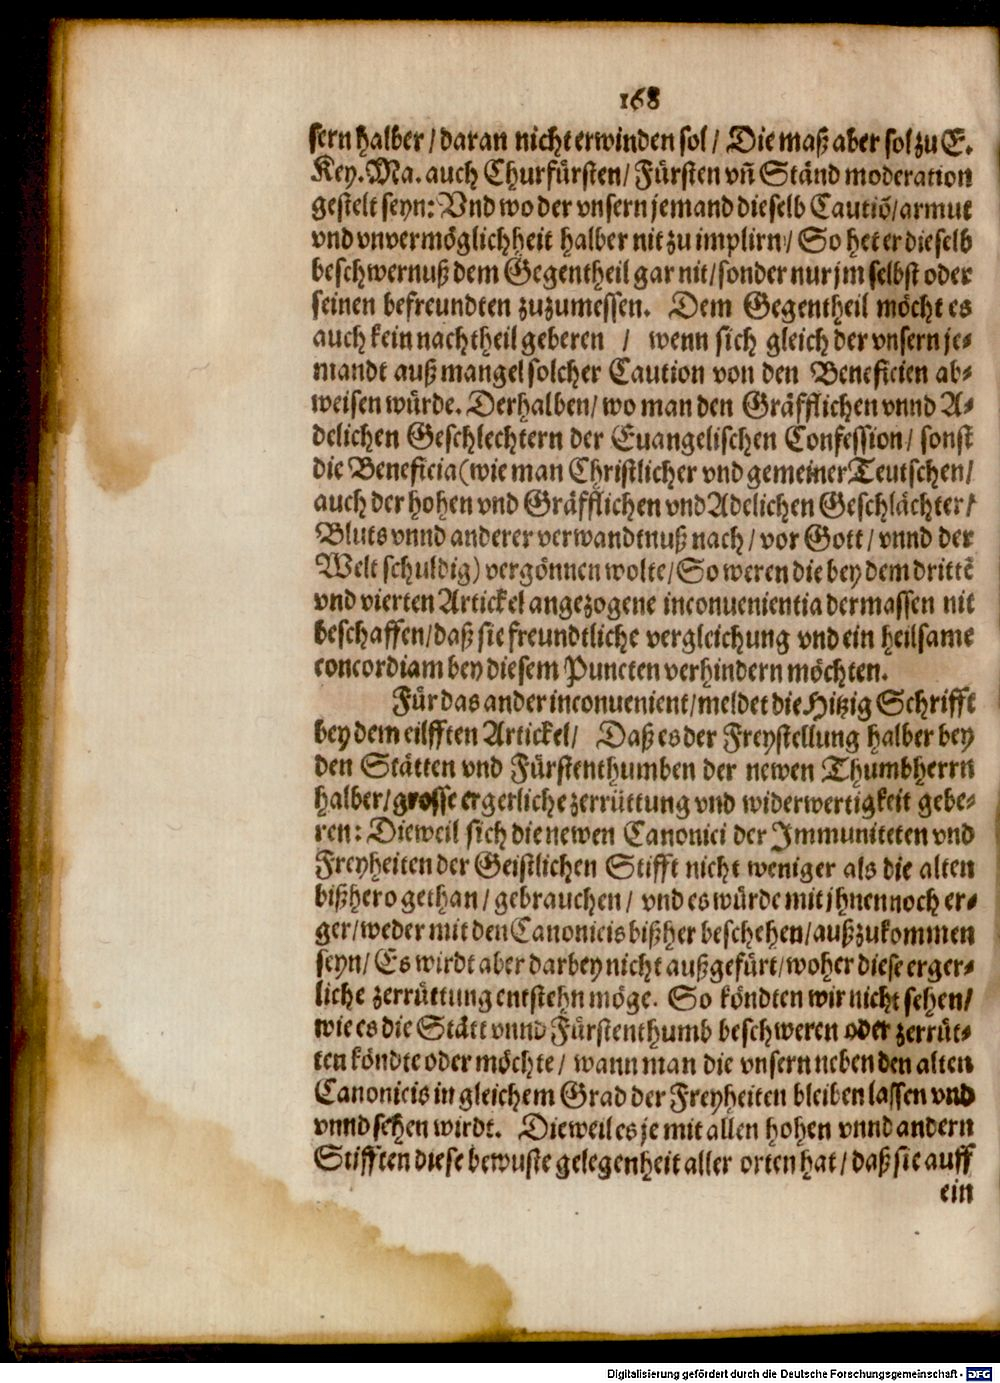 168
sern halber / daran nicht erwinden sol / Die maß aber sol zu E.
Key. Ma. auch Churfürsten / Fürsten vñ Ständ moderation
gestelt seyn: Vnd wo der vnsern jemand dieselb Cautiõ / armut
vnd vnvermöglichheit halber nit zu implirn / So het er dieselb
beschwernuß dem Gegentheil gar nit / sonder nur jm selbst oder
seinen befreundten zuzumessen. Dem Gegentheil möcht es
auch kein nachtheil geberen / wenn sich gleich der vnsern je-
mandt auß mangel solcher Caution von den Beneficien ab-
weisen würde. Derhalben / wo man den Gräfflichen vnnd A-
delichen Geschlechtern der Euangelischen Confession / sonst
die Beneficia (wie man Christlicher vnd gemeiner Teutschen /
auch der hohen vnd Gräfflichen vnd Adelichen Geschlächter /
Bluts vnnd anderer verwandtnuß nach / vor Gott / vnnd der
Welt schuldig) vergönnen wolte / So weren die bey dem drittẽ
vnd vierten Artickel angezogene inconuenientia dermassen nit
beschaffen / daß sie freundtliche vergleichung vnd ein heilsame
concordiam bey diesem Puncten verhindern möchten.
Für das ander inconuenient / meldet die Hitzig Schrifft
bey dem eilfften Artickel / Daß es der Freystellung halber bey
den Stätten vnd Fürstenthumben der newen Thumbherrn
halber / grosse ergerliche zerrüttung vnd widerwertigkeit gebe-
ren: Dieweil sich die newen Canonici der Immuniteten vnd
Freyheiten der Geistlichen Stifft nicht weniger als die alten
bißhero gethan / gebrauchen / vnd es würde mit jhnen noch er-
ger / weder mit den Canonicis bißher beschehen / außzukommen
seyn / Es wirdt aber darbey nicht außgefürt / woher diese erger-
liche zerrüttung entstehn möge. So köndten wir nicht sehen /
wie es die Stätt vnnd Fürstenthumb beschweren oder zerrüt-
ten köndte oder möchte / wann man die vnsern neben den alten
Canonicis in gleichem Grad der Freyheiten bleiben lassen vnd
vnnd sehen wirdt. Dieweil es je mit allen hohen vnnd andern
Stifften diese bewuste gelegenheit aller orten hat / daß sie auff
ein
Digitalisierung gefördert durch die Deutsche Forschungsgemeinschaft - DFG